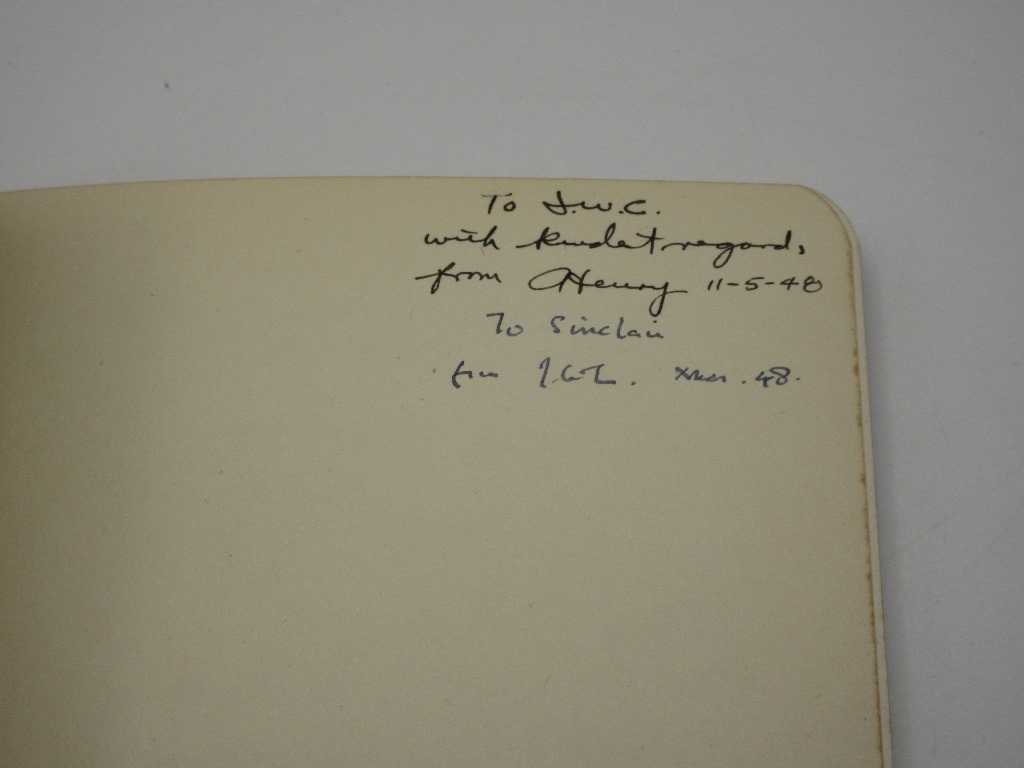 To J.W.C.
with kindest regards,
from Henry 11-5-48
To Sinclair
from Xmas .48.